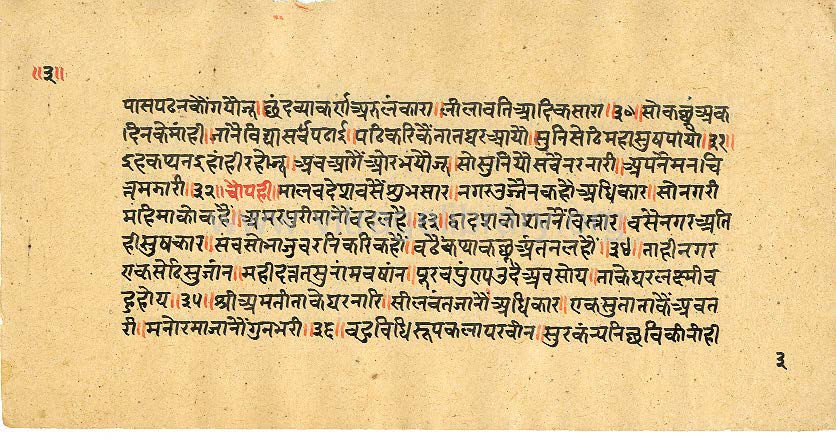 ॥३॥
पासपढनकौंगयौजू॥छंदव्याकर्णअरुलंकारा॥लीलावतिआदिकसारा॥३०॥सोकछूअक
दिनकेमांही॥तानैविद्यासर्वपढाई॥पढिकरिकेंतातघरआयौ॥सुनिसेठिमहासुषपायौ॥३१॥
इहकथ्यनइहांहीरहौजू॥अवआगेंऔरभयौजू॥सोसुनियौसवनरनारी॥अपनेमनचि
त्तमझारी॥३२॥चौपही॥मालवदेशवसेंशुभसार॥नगरउजैनकहौअधिकार॥सोनगरी
महिमाकोकहै॥अमरपुरीमानौंवहलहै॥३३॥द्वादशकोशतनेंविस्तार॥वसेनगरअति
हीसुषकार॥सवसोभाजुवरनिकरिकहौं॥वढैकथाकछुअंतनलहौं॥३४॥ताहीनगर
एकसेठिसुजांन॥महीदत्ततसुनांमवषांन॥पूरवपुंण्यउदैअवसोय॥ताकेघरलक्ष्मीव
हुहोय॥३५॥श्रीअमतीताकेघरनारि॥सीलवंतजानौंअधिकार॥एकसुतातार्केअवत
री॥मनोरमाजानौंगुनभरी॥३६॥वहुविधिरूपकलापरवीन॥सुरकंन्यनिछविकीनीही
३